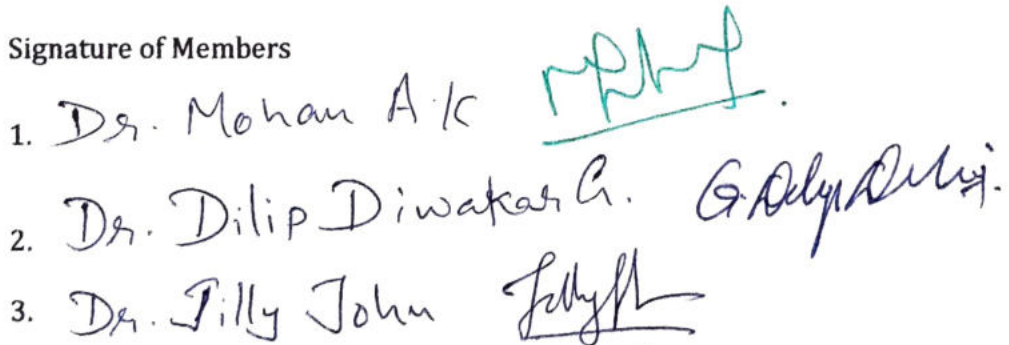 Signature of Members
1. Dr. Mohan A.K
2. Dr. Dilip Diwakar G.
3. Dr. Jilly John